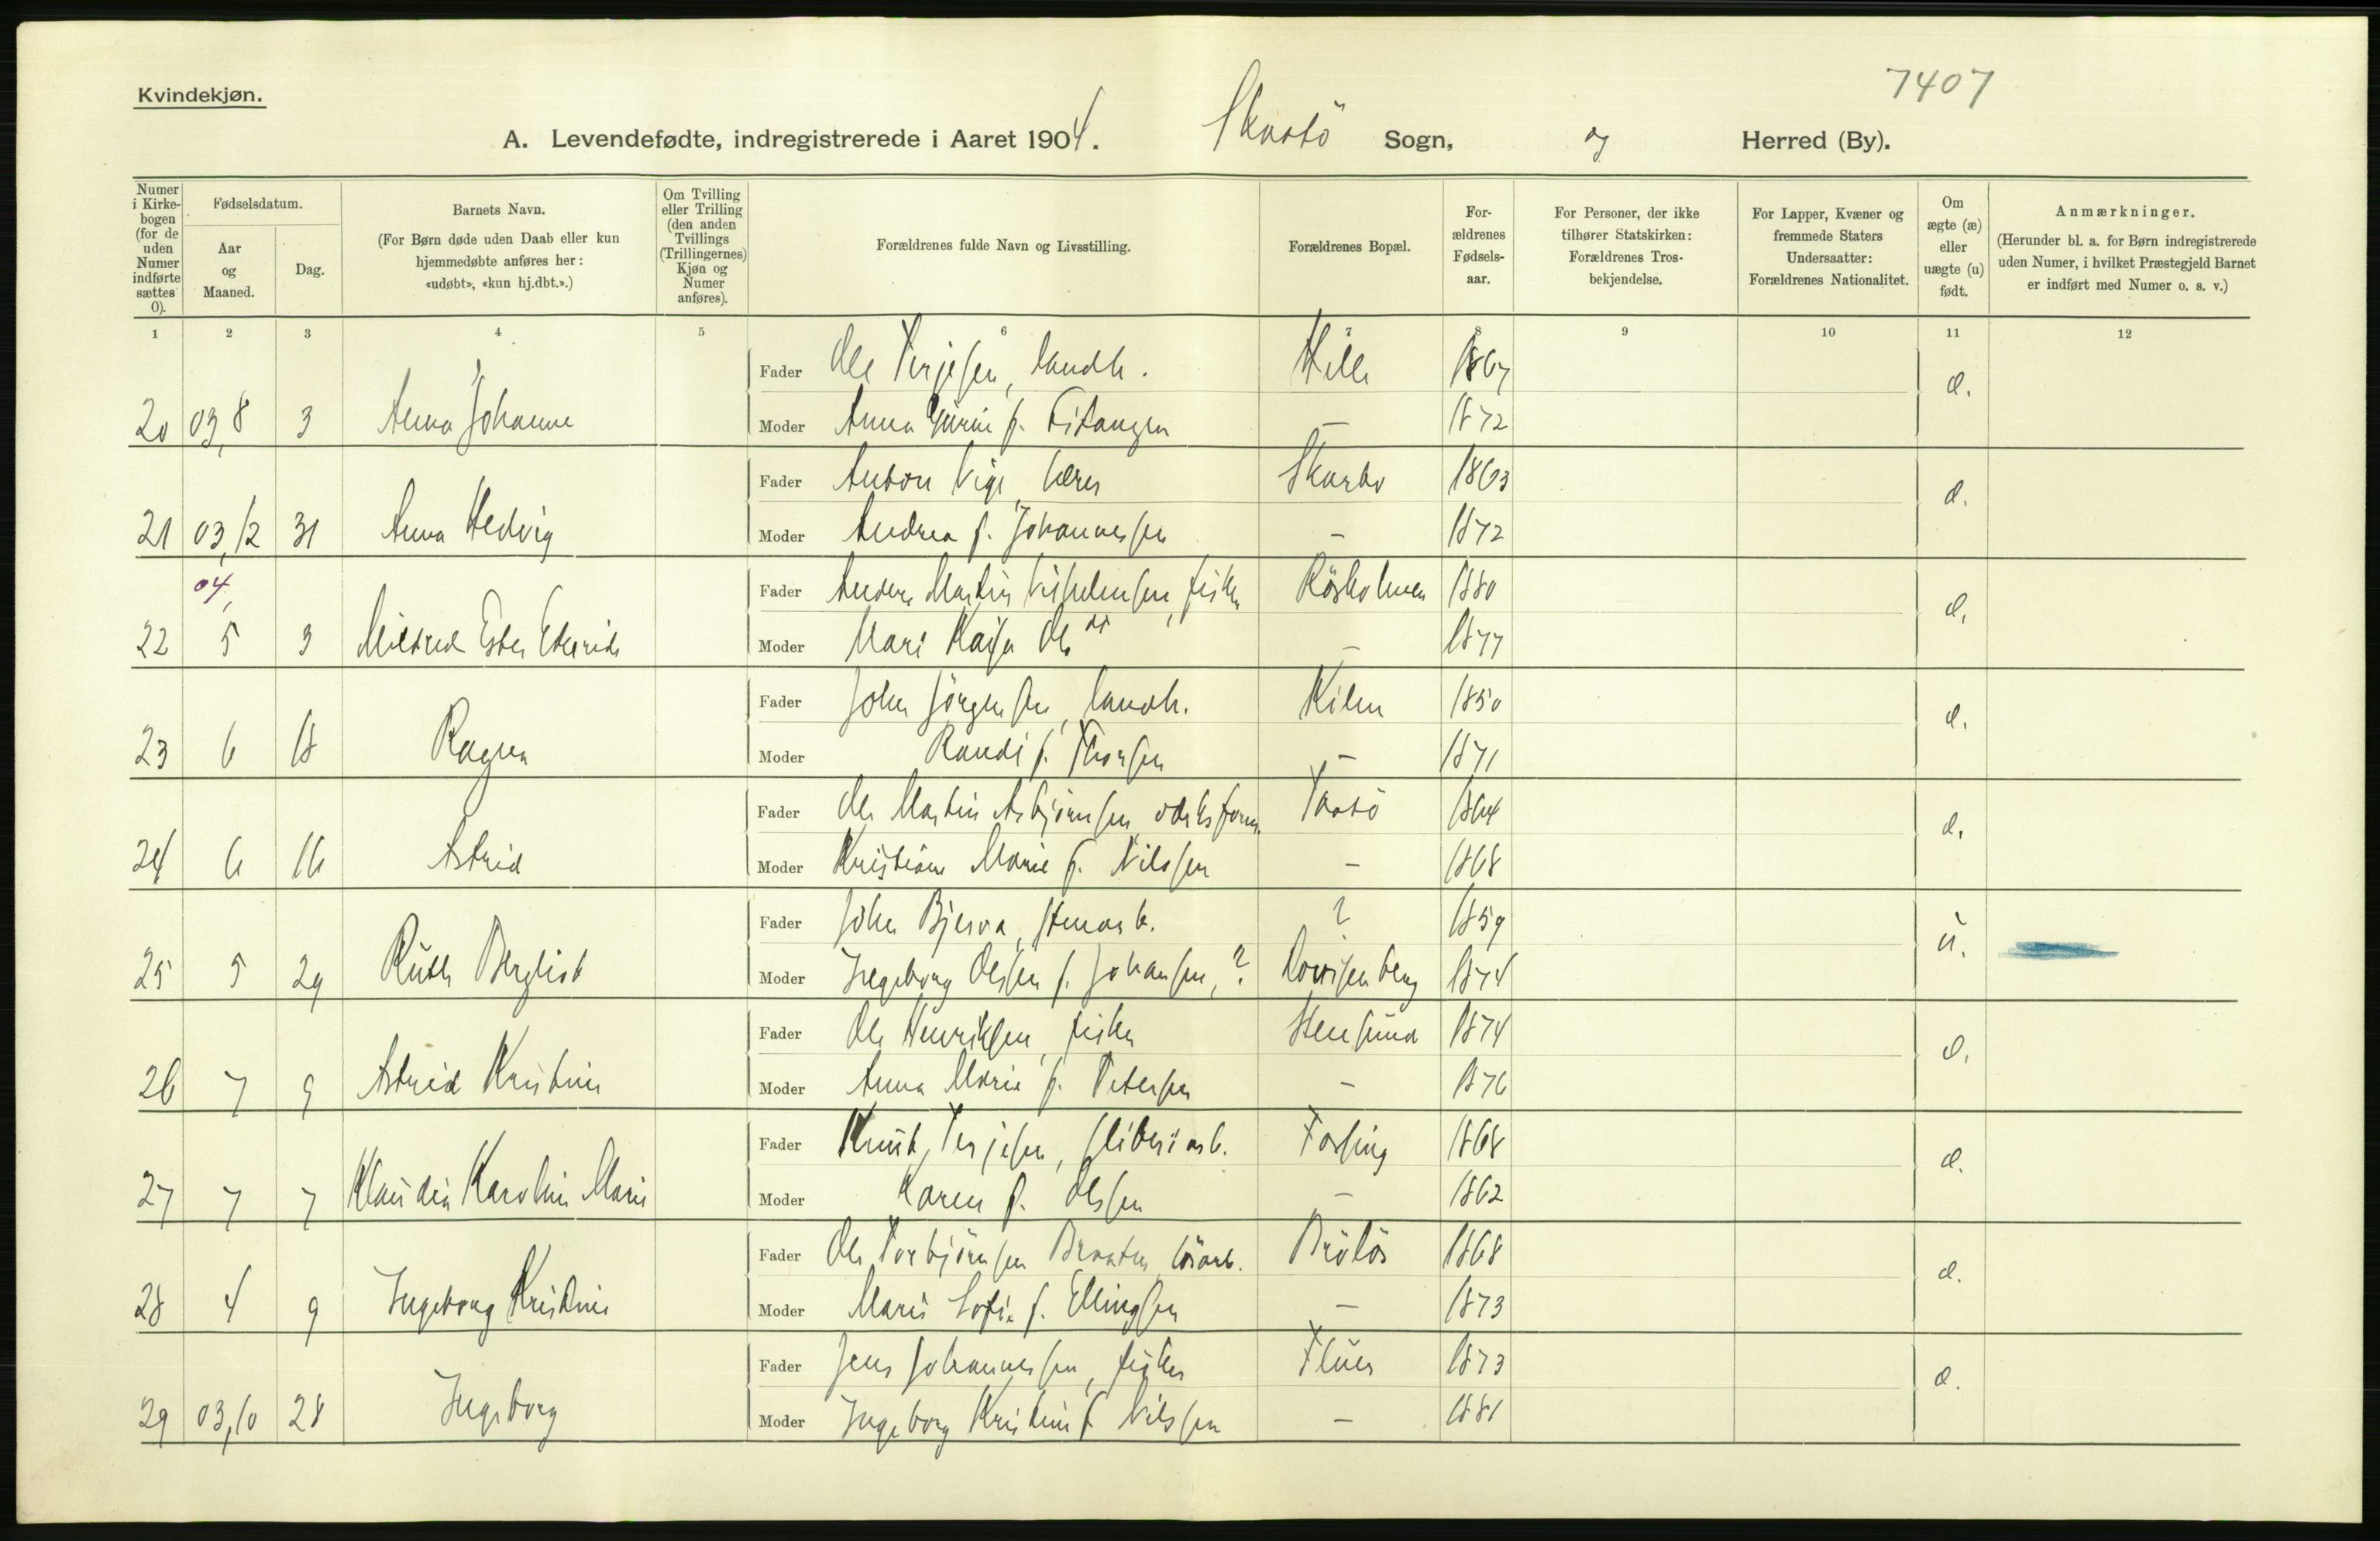 7407
Kvindekjøn.
A. Levendefødte, indregistrerede i Aaret 1904. Skaatö Sogn, og Herred (By).
Numer i Kirkebogen (for de uden Numer indførte sættes 0).
Fødselsdatum.
Aar og Maaned.
Dag.
Barnets Navn.
(For Børn døde uden Daab eller kun hjemmedøbte anføres her: «udøbt», «kun hj.dbt.».)
Om Tvilling eller Trilling (den anden Tvillings (Trillingernes) Kjøn og Numer anføres).
Forældrenes fulde Navn og Livsstilling.
Forældrenes Bopæl.
Forældrenes Fødselsaar.
For Personer, der ikke tilhører Statskirken: Forældrenes Trosbekjendelse.
For Lapper, Kvæner og fremmede Staters Undersaatter: Forældrenes Nationalitet.
Om ægte (æ) eller uægte (u) født.
Anmærkninger.
(Herunder bl. a. for Børn indregistrerede uden Numer, i hvilket Præstegjeld Barnet er indført med Numer o. s. v.)
1 2 3 4 5 6 7 8 9 10 11 12
Fader Ole Terjesen, landh. Hille 1867
20 03,8 3 Anna Johanne Moder Anna f. Eitangen – 1872 æ.
Fader Anton Vige, lærer 1863
21 03,12 31 Anna Hedvig Moder Andrea f. Johannessen – 1872 æ.
04,
Fader Martin, fisker 1880
22 5 3 Mildred Ester Moder Mari Kaisa – 1877 æ.
Fader John Jörgensen, landh. Kilen 1850
23 6 18 Ragna Moder Randi f. Thorsen – 1871 æ.
Fader Ole Martin Asbjörnsen, Taatö 1864
24 6 16 Astrid Moder Kristiane Marie f. Nilssen – 1868 æ.
Fader John Bjerva, stenarb. ? 1859
25 5 29 Ruth Bergliot Moder Ingeborg Olssen f. Johansen, ? Lovisenberg 1874 u.
Fader Ole Henriksen, fisker Stensund 1874
26 7 9 Astrid Kristine Moder Anna Marie f. Petersen – 1876 æ.
Fader Knut Terjesen, sliberiarb. Fossing 1868
27 7 7 Klaudia Karoline Marie Moder Karen f. Olssen – 1862 æ.
Fader Ole Torbjörnsen Braaten, lösarb. 1868
28 4 9 Ingeborg Kristine Moder Marie Sofie f. Ellingsen – 1873 æ.
Fader Jens Johannessen, fisker Fluer 1873
29 03,10 28 Ingeborg Moder Ingeborg Kristine f. Nilssen – 1881 æ.